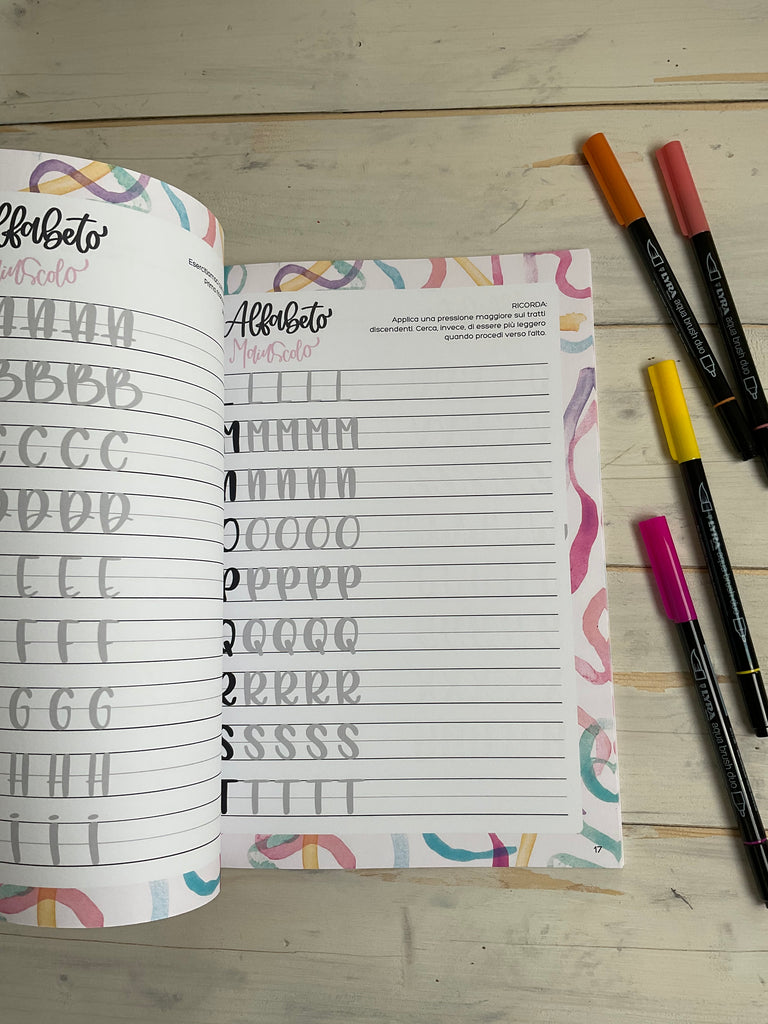 Alfabeto
Maiuscolo
A A A A
B B B B
C C C C
D D D D
E E E
F F F
G G G
H H H
i i i
Alfabeto
Maiuscolo
RICORDA:
Applica una pressione maggiore sui tratti
discendenti. Cerca, invece, di essere più leggero
quando procedi verso l'alto.
L L L L L
M M M M M
N N N N N
O O O O O
P P P P P
Q Q Q Q Q
R R R R R
S S S S S
T T T T T
17
LYRA aqua brush duo
LYRA aqua brush duo
LYRA aqua brush duo
LYRA aqua brush duo